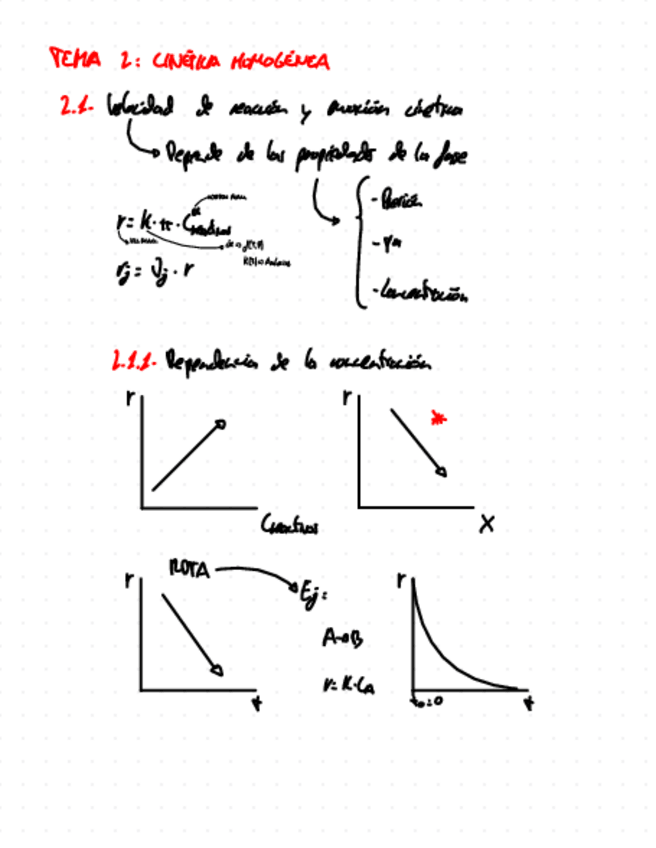 TEMA 2: CINÉTICA HOMOGÉNEA
2.1. Velocidad de reacción y ecuación cinética
Depende de las propiedades de la fase
- Presión
r = K · π · C
- Tª
rj = νj · r
- Concentración
2.1.1. Dependencia de la concentración
r
r
Creactivos
X
r
NOTA
Ej:
r
A→B
r = K·CA
t
t₀=0
t